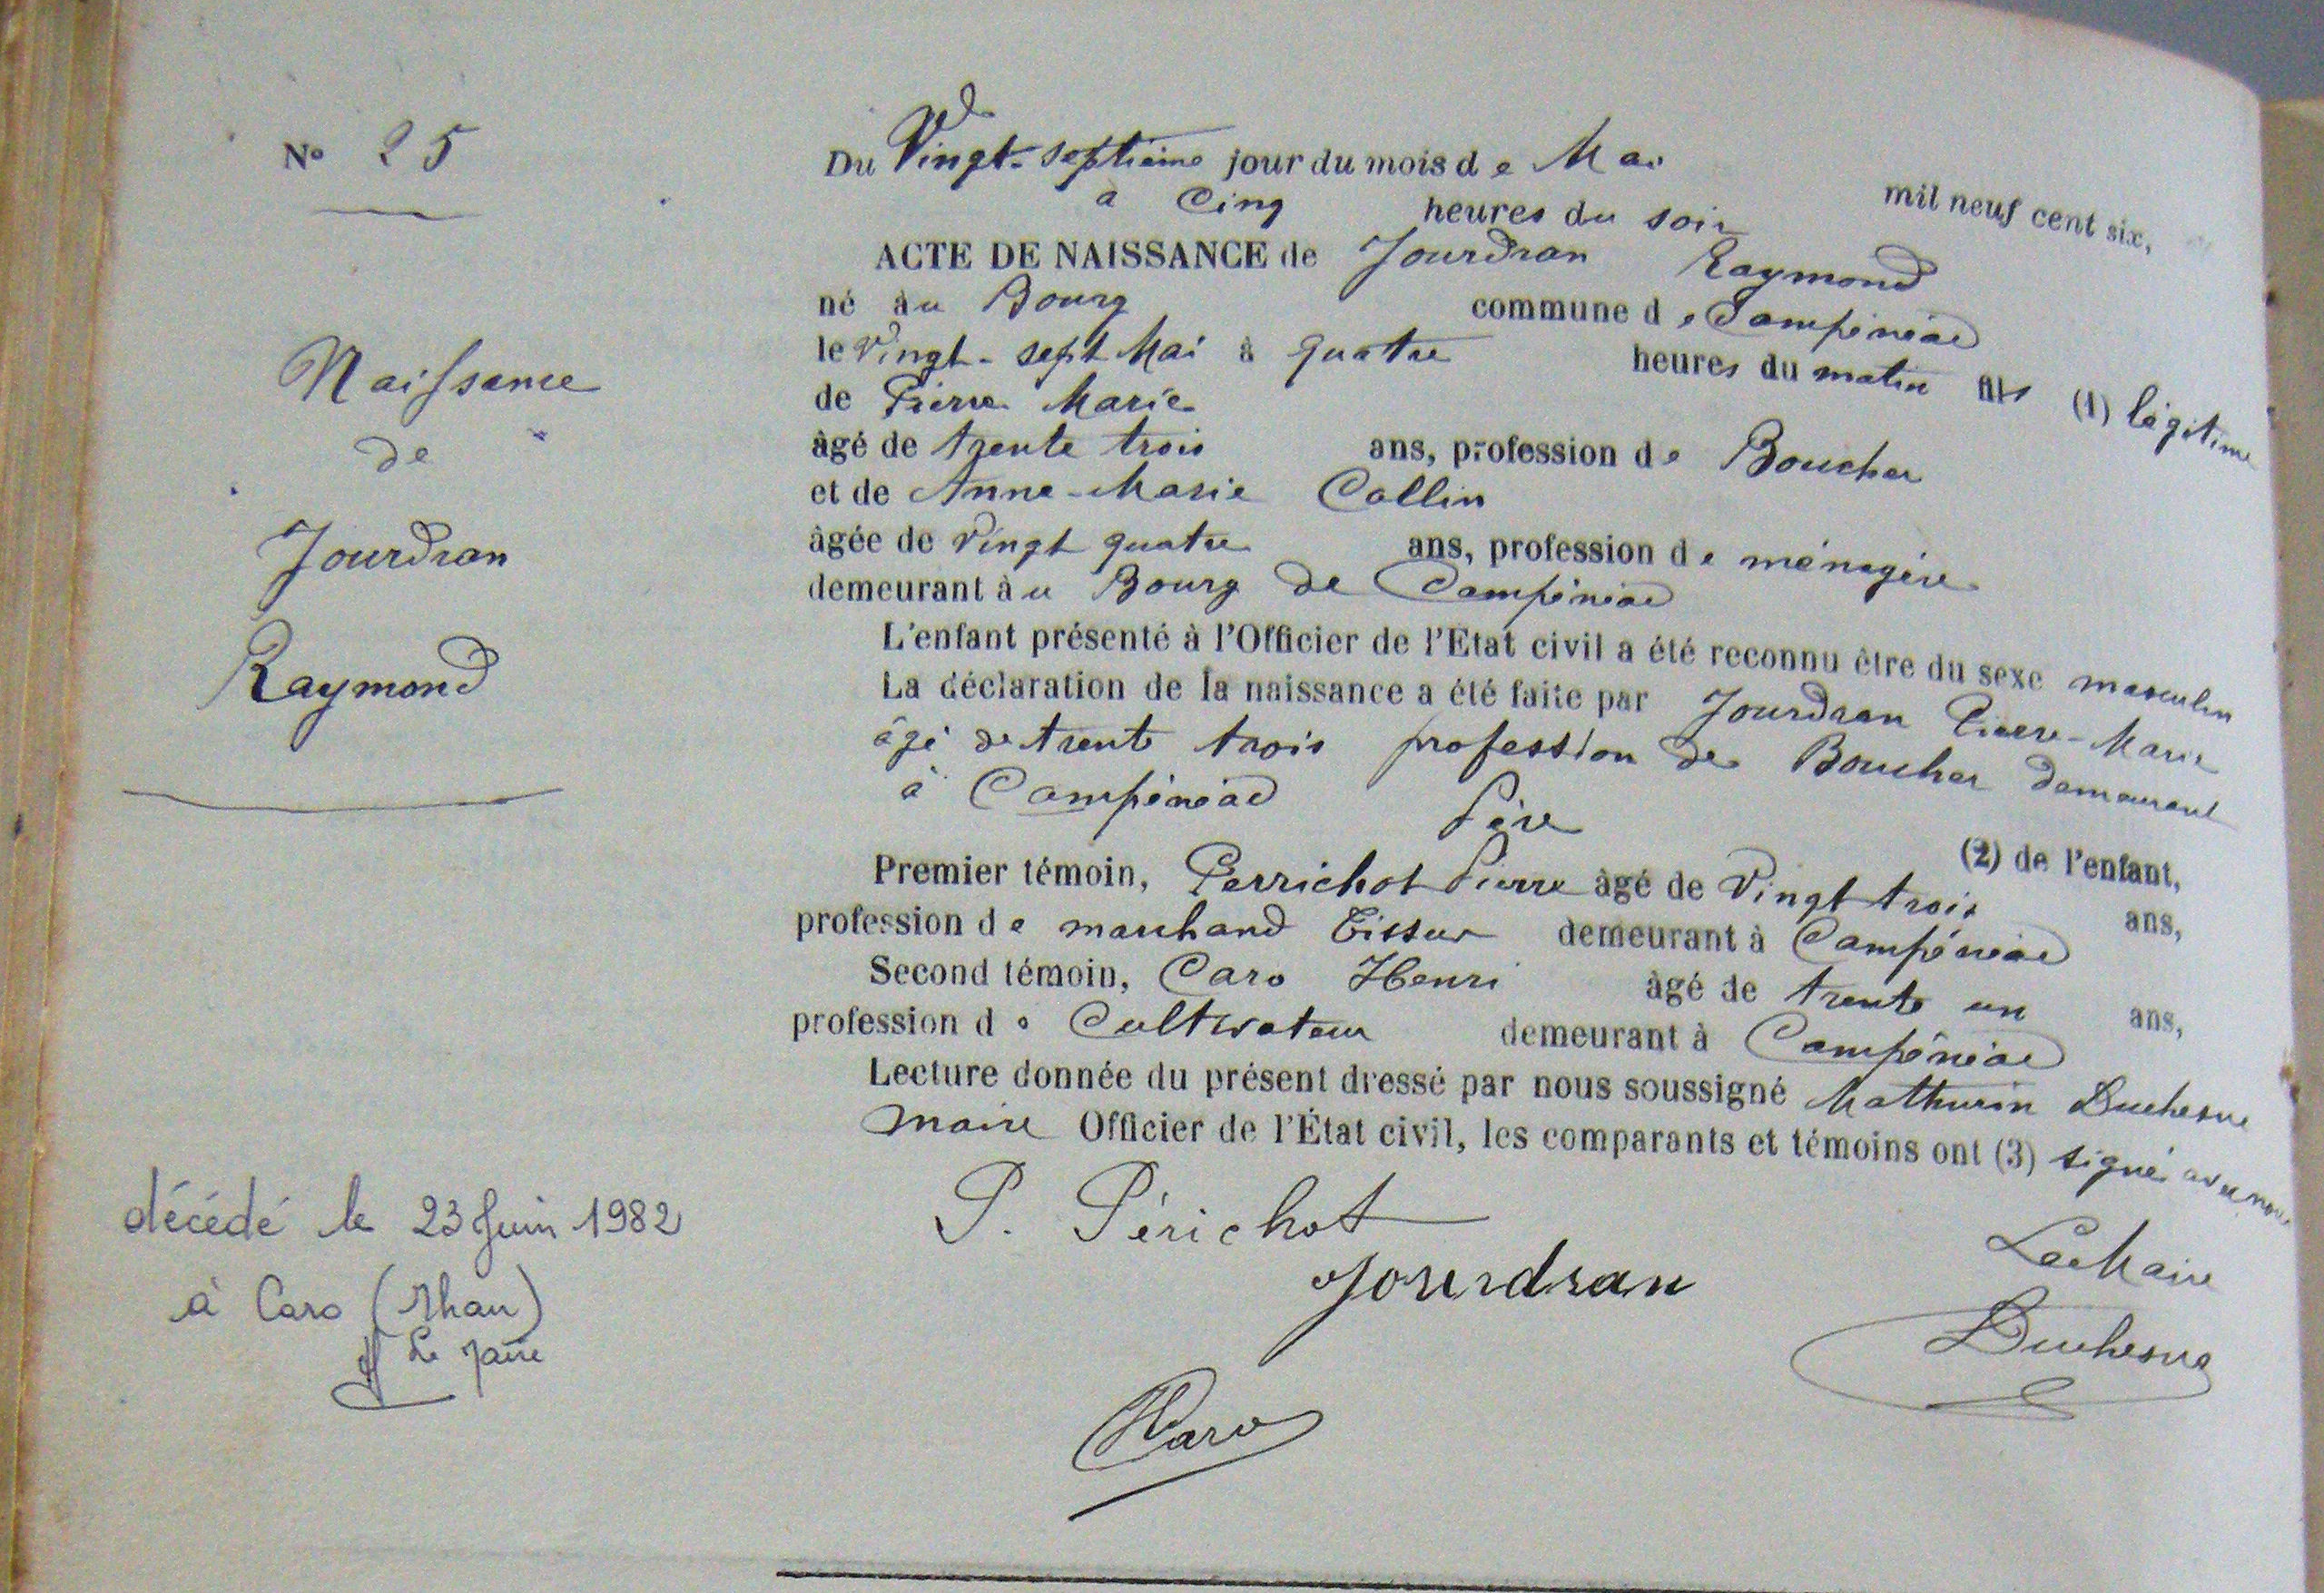 N° 25
Naissance
de
Jourdran
Raymond
décédé le 23 Juin 1982
à Caro (Mhan)
Le Maire
Du Vingt-septième jour du mois de Mai mil neuf cent six,
à Cinq heures du soir
ACTE DE NAISSANCE de Jourdran Raymond
né au Bourg commune de Campénéac
le Vingt-sept Mai à quatre heures du matin fils (1) légitime
de Pierre Marie
âgé de trente trois ans, profession de Boucher
et de Anne-Marie Collin
âgée de Vingt quatre ans, profession de ménagère
demeurant au Bourg de Campénéac
L'enfant présenté à l'Officier de l'Etat civil a été reconnu être du sexe masculin
La déclaration de la naissance a été faite par Jourdran Pierre-Marie
âgé de trente trois profession de Boucher demeurant
à Campénéac Père (2) de l'enfant,
Premier témoin, Perrichot Pierre âgé de Vingt trois ans,
profession de marchand Tissus demeurant à Campénéac
Second témoin, Caro Henri âgé de trente un ans,
profession de Cultivateur demeurant à Campénéac
Lecture donnée du présent dressé par nous soussigné Mathurin Duchesne
Maire Officier de l'État civil, les comparants et témoins ont (3) signé avec nous
P. Périchot
Le Maire
Jourdran
Duchesne
HCaro